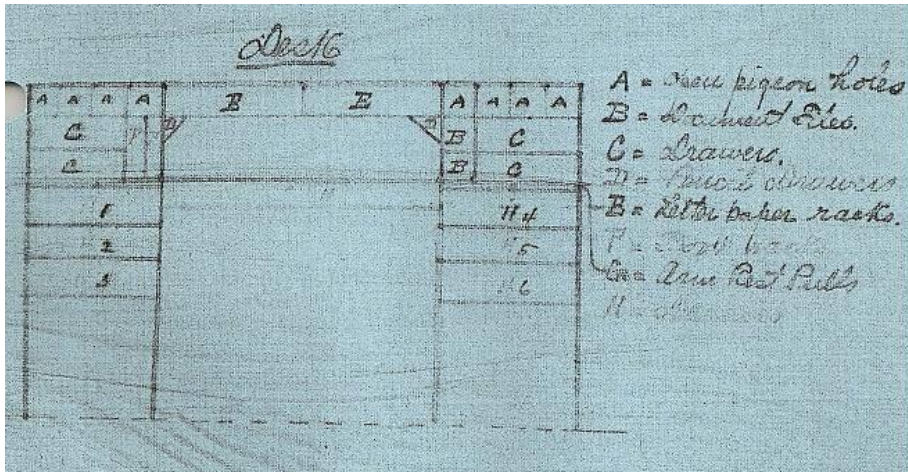 Desk
A A A A E E A A A A
C F D D B C
C B C
1 H 4
2 5
3 H 6
A = pigeon holes
B = Document Files.
C = Drawers.
D = Pencil drawers
E = Letter paper racks.
F =
G = Arm Rest Pulls
H =